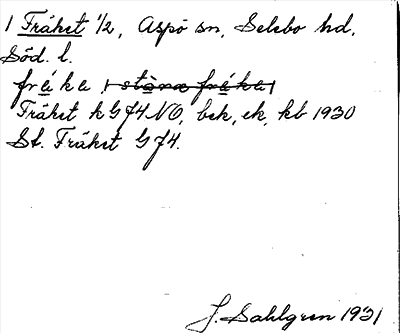 1 Fräkst 1/2, Aspö sn, Selebo hd,
Söd. l.
fräka, stòra fräka
Fräkst k G74NO, bek, ek, kb 1930
St. Fräkst G 74.
J. Sahlgren 1931